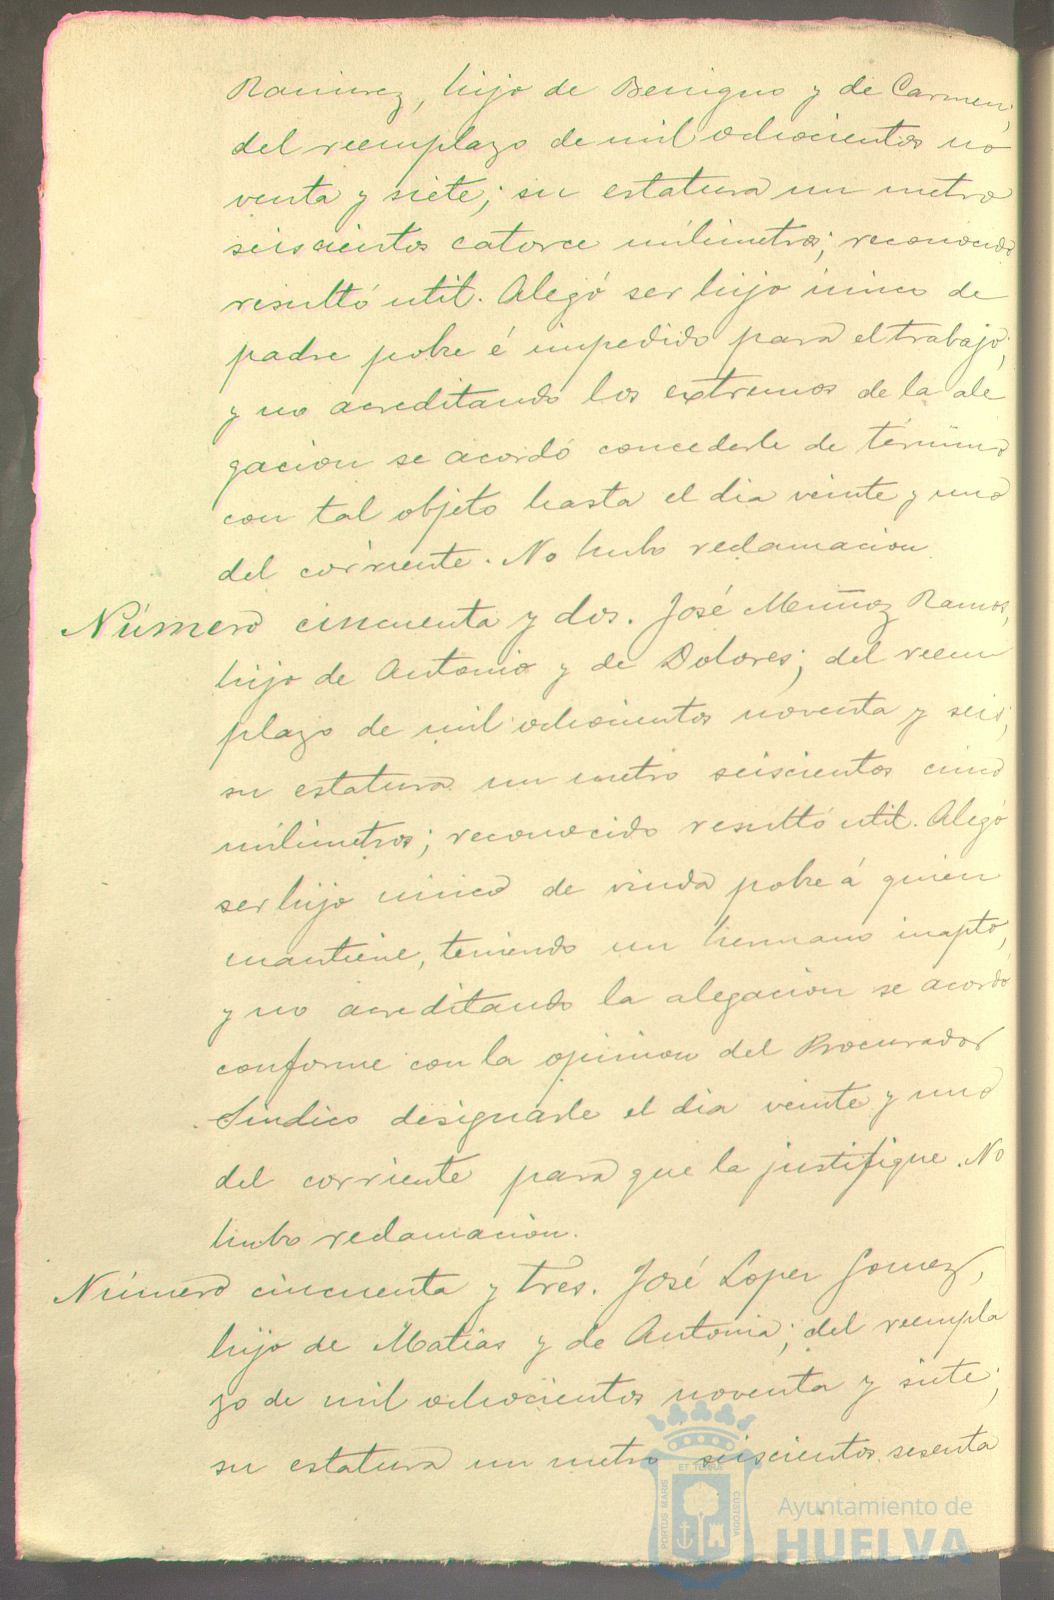 Ramirez, hijo de Benigno y de Carmen,
del reemplazo de mil ochocientos no
venta y siete; su estatura un metro
seiscientos catorce milimetros; reconocido
resultó util. Alegó ser hijo único de
padre pobre é impedido para el trabajo,
y no acreditando los extremos de la ale
gacion se acordó concederle de término
con tal objeto hasta el dia veinte y uno
del corriente. No hubo reclamacion.
Número cincuenta y dos. José Muñoz Ramos,
hijo de Antonio y de Dolores; del reem
plazo de mil ochocientos noventa y seis;
su estatura un metro seiscientos cinco
milimetros; reconocido resultó util. Alegó
ser hijo unico de viuda pobre á quien
mantiene, teniendo un hermano inapto,
y no acreditando la alegacion se acordó
conforme con la opinion del Procurador
Sindico designarle el dia veinte y uno
del corriente para que la justifique. No
hubo reclamacion.
Número cincuenta y tres. José Lopez Gomez,
hijo de Matias y de Antonia; del reempla
zo de mil ochocientos noventa y siete;
su estatura un metro seiscientos sesenta
PORTUS MARIS ET TERRAE CUSTODIA
Ayuntamiento de
HUELVA